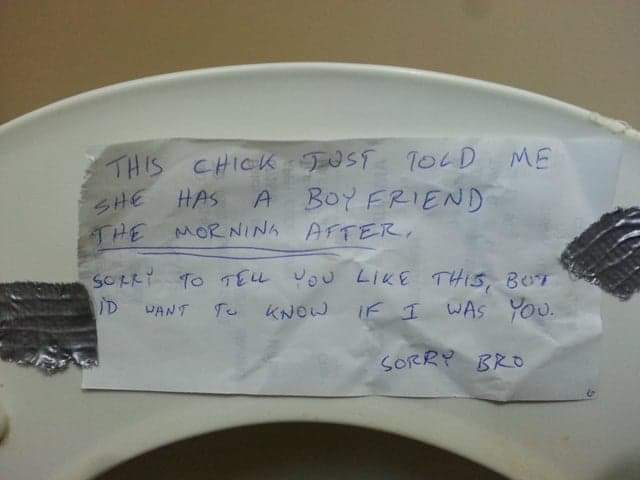 THIS CHICK JUST TOLD ME
SHE HAS A BOYFRIEND
THE MORNING AFTER.
SORRY TO TELL YOU LIKE THIS, BUT
I'D WANT TO KNOW IF I WAS YOU.
SORRY BRO